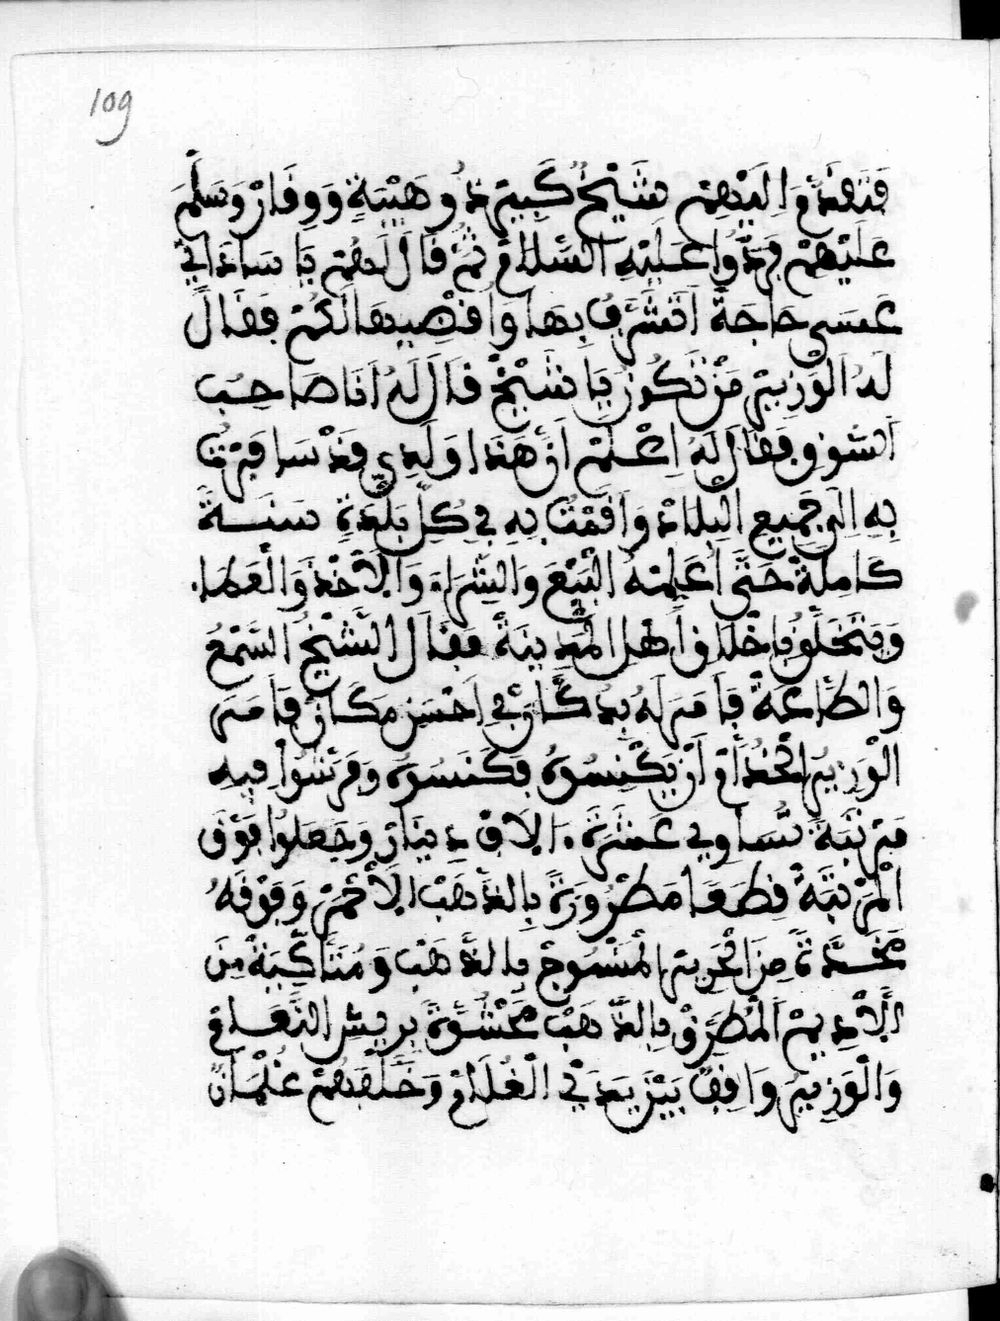 109
فَتَقَدَّمَ اِلَيْهِمْ شَيْخٌ كَبِيرٌ ذُو هَيْبَةٍ وَوِقَارْ وَسَلَّمَ
عَلَيْهِمْ فَرَدُّوا عَلَيْهِ السَّلَامْ ثُمَّ قَالَ لَهُمْ يَا سَادَاتِي
عَسَى حَاجَةً اَتَشَرَّفُ بِهَا وَاقْضِيهَا لَكُمْ فَقَالَ
لَهُ الْوَزِيرْ مَنْ تَكُونْ يَا شَيْخْ قَالَ لَهُ اَنَا صَاحِبُ
السُّوقِ فَقَالَ لَهُ اِعْلَمْ اَنَّ هَذَا وَلَدِي وَقَدْ سَافَرْتُ
بِهِ اِلَى جَمِيعِ الْبِلَادْ وَاَقَمْتُ بِهِ فِي كُلِّ بَلْدَةٍ سَنَــةً
كَامِلَةً حَتَّى اُعَلِّمَهُ الْبَيْعَ وَالشِّرَاءَ وَالْاَخْذَ وَالْعَطَاءَ
وَيَتَخَلَّقُ بِاَخْلَاقِ اَهْلِ الْمَدِينَةْ فَقَالَ الشَّيْخُ السَّمْعُ
وَالطَّاعَةْ فَاَمَرَ لَهُ بِدُكَّانٍ فِي اَحْسَنِ مَكَانْ فَاَمَرَ
الْوَزِيرُ الْخُدَّامْ اَنْ يَكْنِسُوهُ فَكَنَسُوهْ وَفَرَشُوا فِيهِ
مَرْتَبَةً تُسَاوِي عَشَرَةَ ءَالَافِ دِينَارْ وَجَعَلُوا فَوْقَ
الْمَرْتَبَةْ نِطَعًا مَطْرُوزَةْ بِالذَّهَبْ الْاَحْمَرْ وَفَوْقَهُ
مُخَـدَّةً مِنَ الْحَرِيرِ الْمَنْسُوجْ بِالذَّهَبْ وَمُتَّاكِيَةْ مِنَ
الْاَدِيمْ الْمُطَرَّزْ بِالذَّهَبْ مَحْشُوَّةً بِرِيشِ النَّعَامْ
وَالْوَزِيرُ وَاقِفٌ بَيْنَ يَدَيْ الْغُلَامْ وَخَلْفَهُمْ غِلْمَانٌ